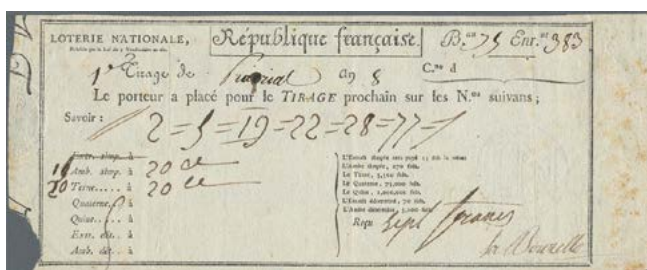 LOTERIE NATIONALE,
République française.
B.au 75 Enr.nt 383
1er Tirage de Prairial an 8 C.ne d
Le porteur a placé pour le TIRAGE prochain sur les N.os suivans ;
Savoir :
2=5=19=22=28=77=
Extr. simp. à
15 Amb. simp. à 20 ce
20 Terne..... à 20 ce
Quaterne. à
Quine..... à
Extr. dét.. à
Amb. dét.. à
L'Extrait simple sera payé 15 fois la mise
L'Ambe simple, 270 fois.
Le Terne, 5,500 fois.
Le Quaterne, 75,000 fois.
Le Quine, 1,000,000 fois.
L'Extrait déterminé, 70 fois.
L'Ambe déterminé, 5,100 fois.
Reçu sept francs